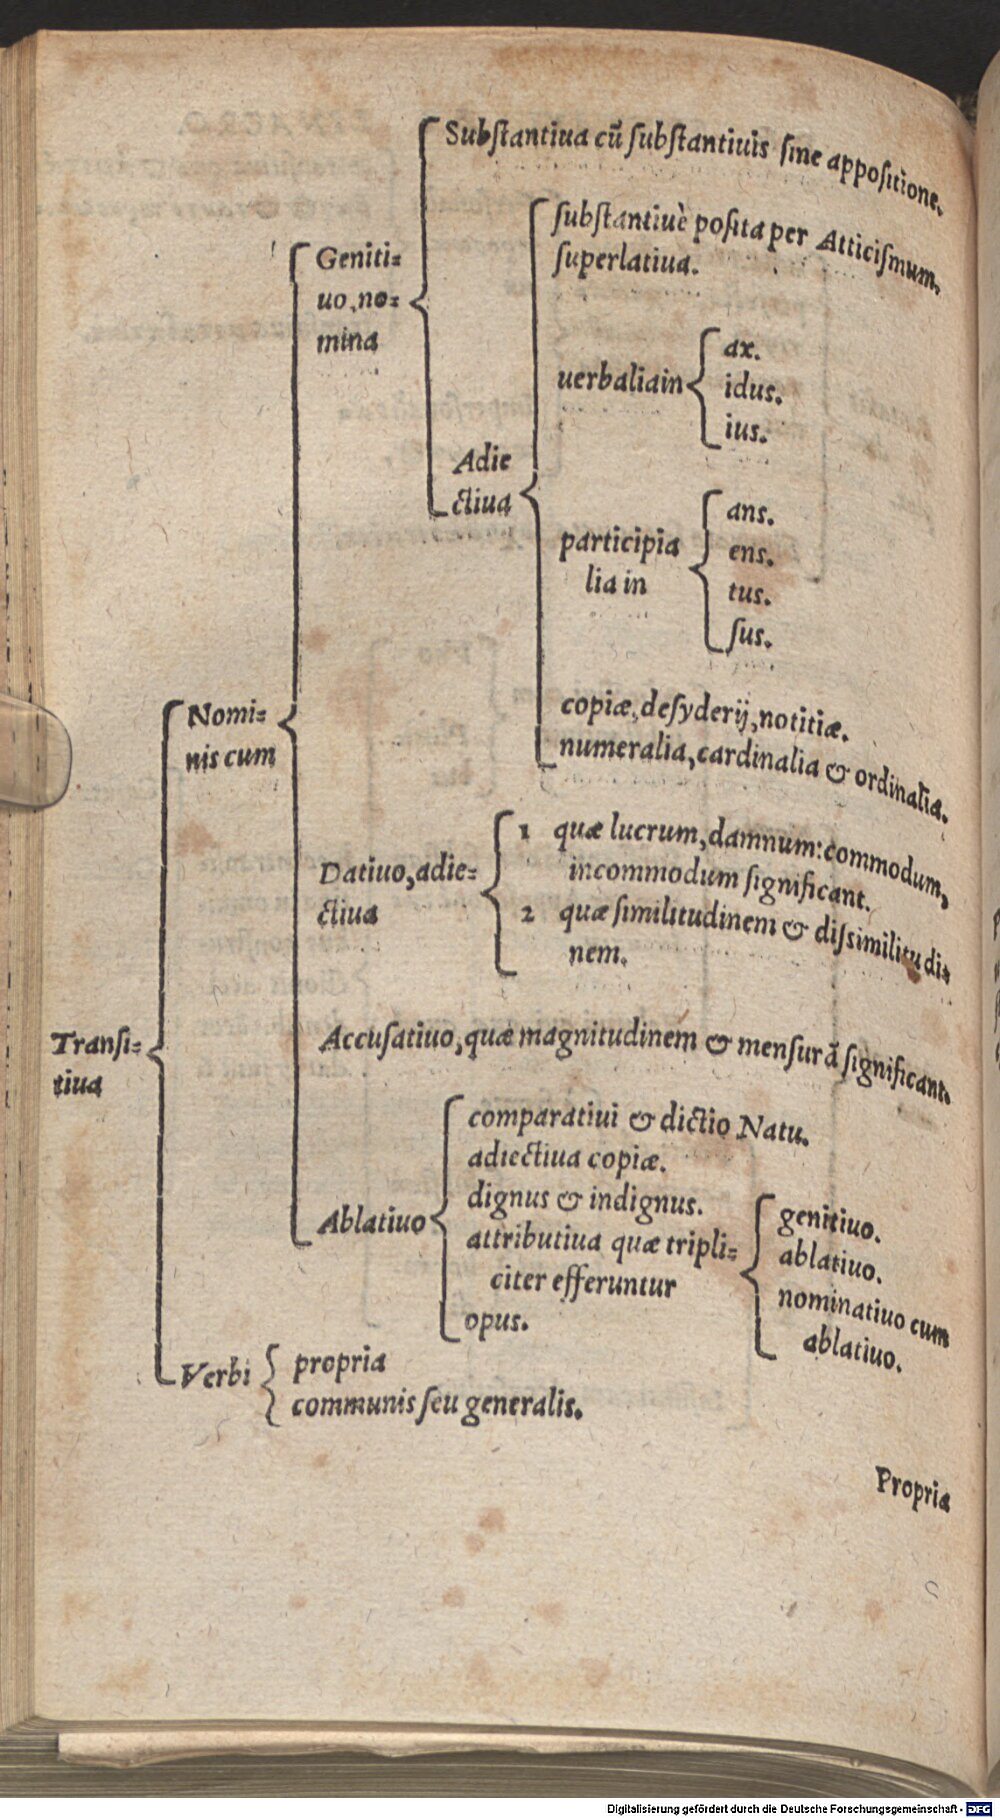 Substantiua cū substantiuis sine appositione.
substantiuè posita per Atticismum.
superlatiua.
Geniti=
uo, no=
mina
uerbalia in
ax.
idus.
ius.
Adie
ctiua
participia
lia in
ans.
ens.
tus.
sus.
Nomi=
nis cum
copiæ, desyderij, notitiæ.
numeralia, cardinalia & ordinalia.
Datiuo, adie=
ctiua
1 quæ lucrum, damnum: commodum,
incommodum significant.
2 quæ similitudinem & dissimilitudi=
nem.
Transi=
tiua
Accusatiuo, quæ magnitudinem & mensurā significant.
Ablatiuo
comparatiui & dictio Natu.
adiectiua copiæ.
dignus & indignus.
attributiua quæ tripli=
citer efferuntur
genitiuo.
ablatiuo.
nominatiuo cum
ablatiuo.
opus.
Verbi
propria
communis seu generalis.
Propria
Digitalisierung gefördert durch die Deutsche Forschungsgemeinschaft - DFG